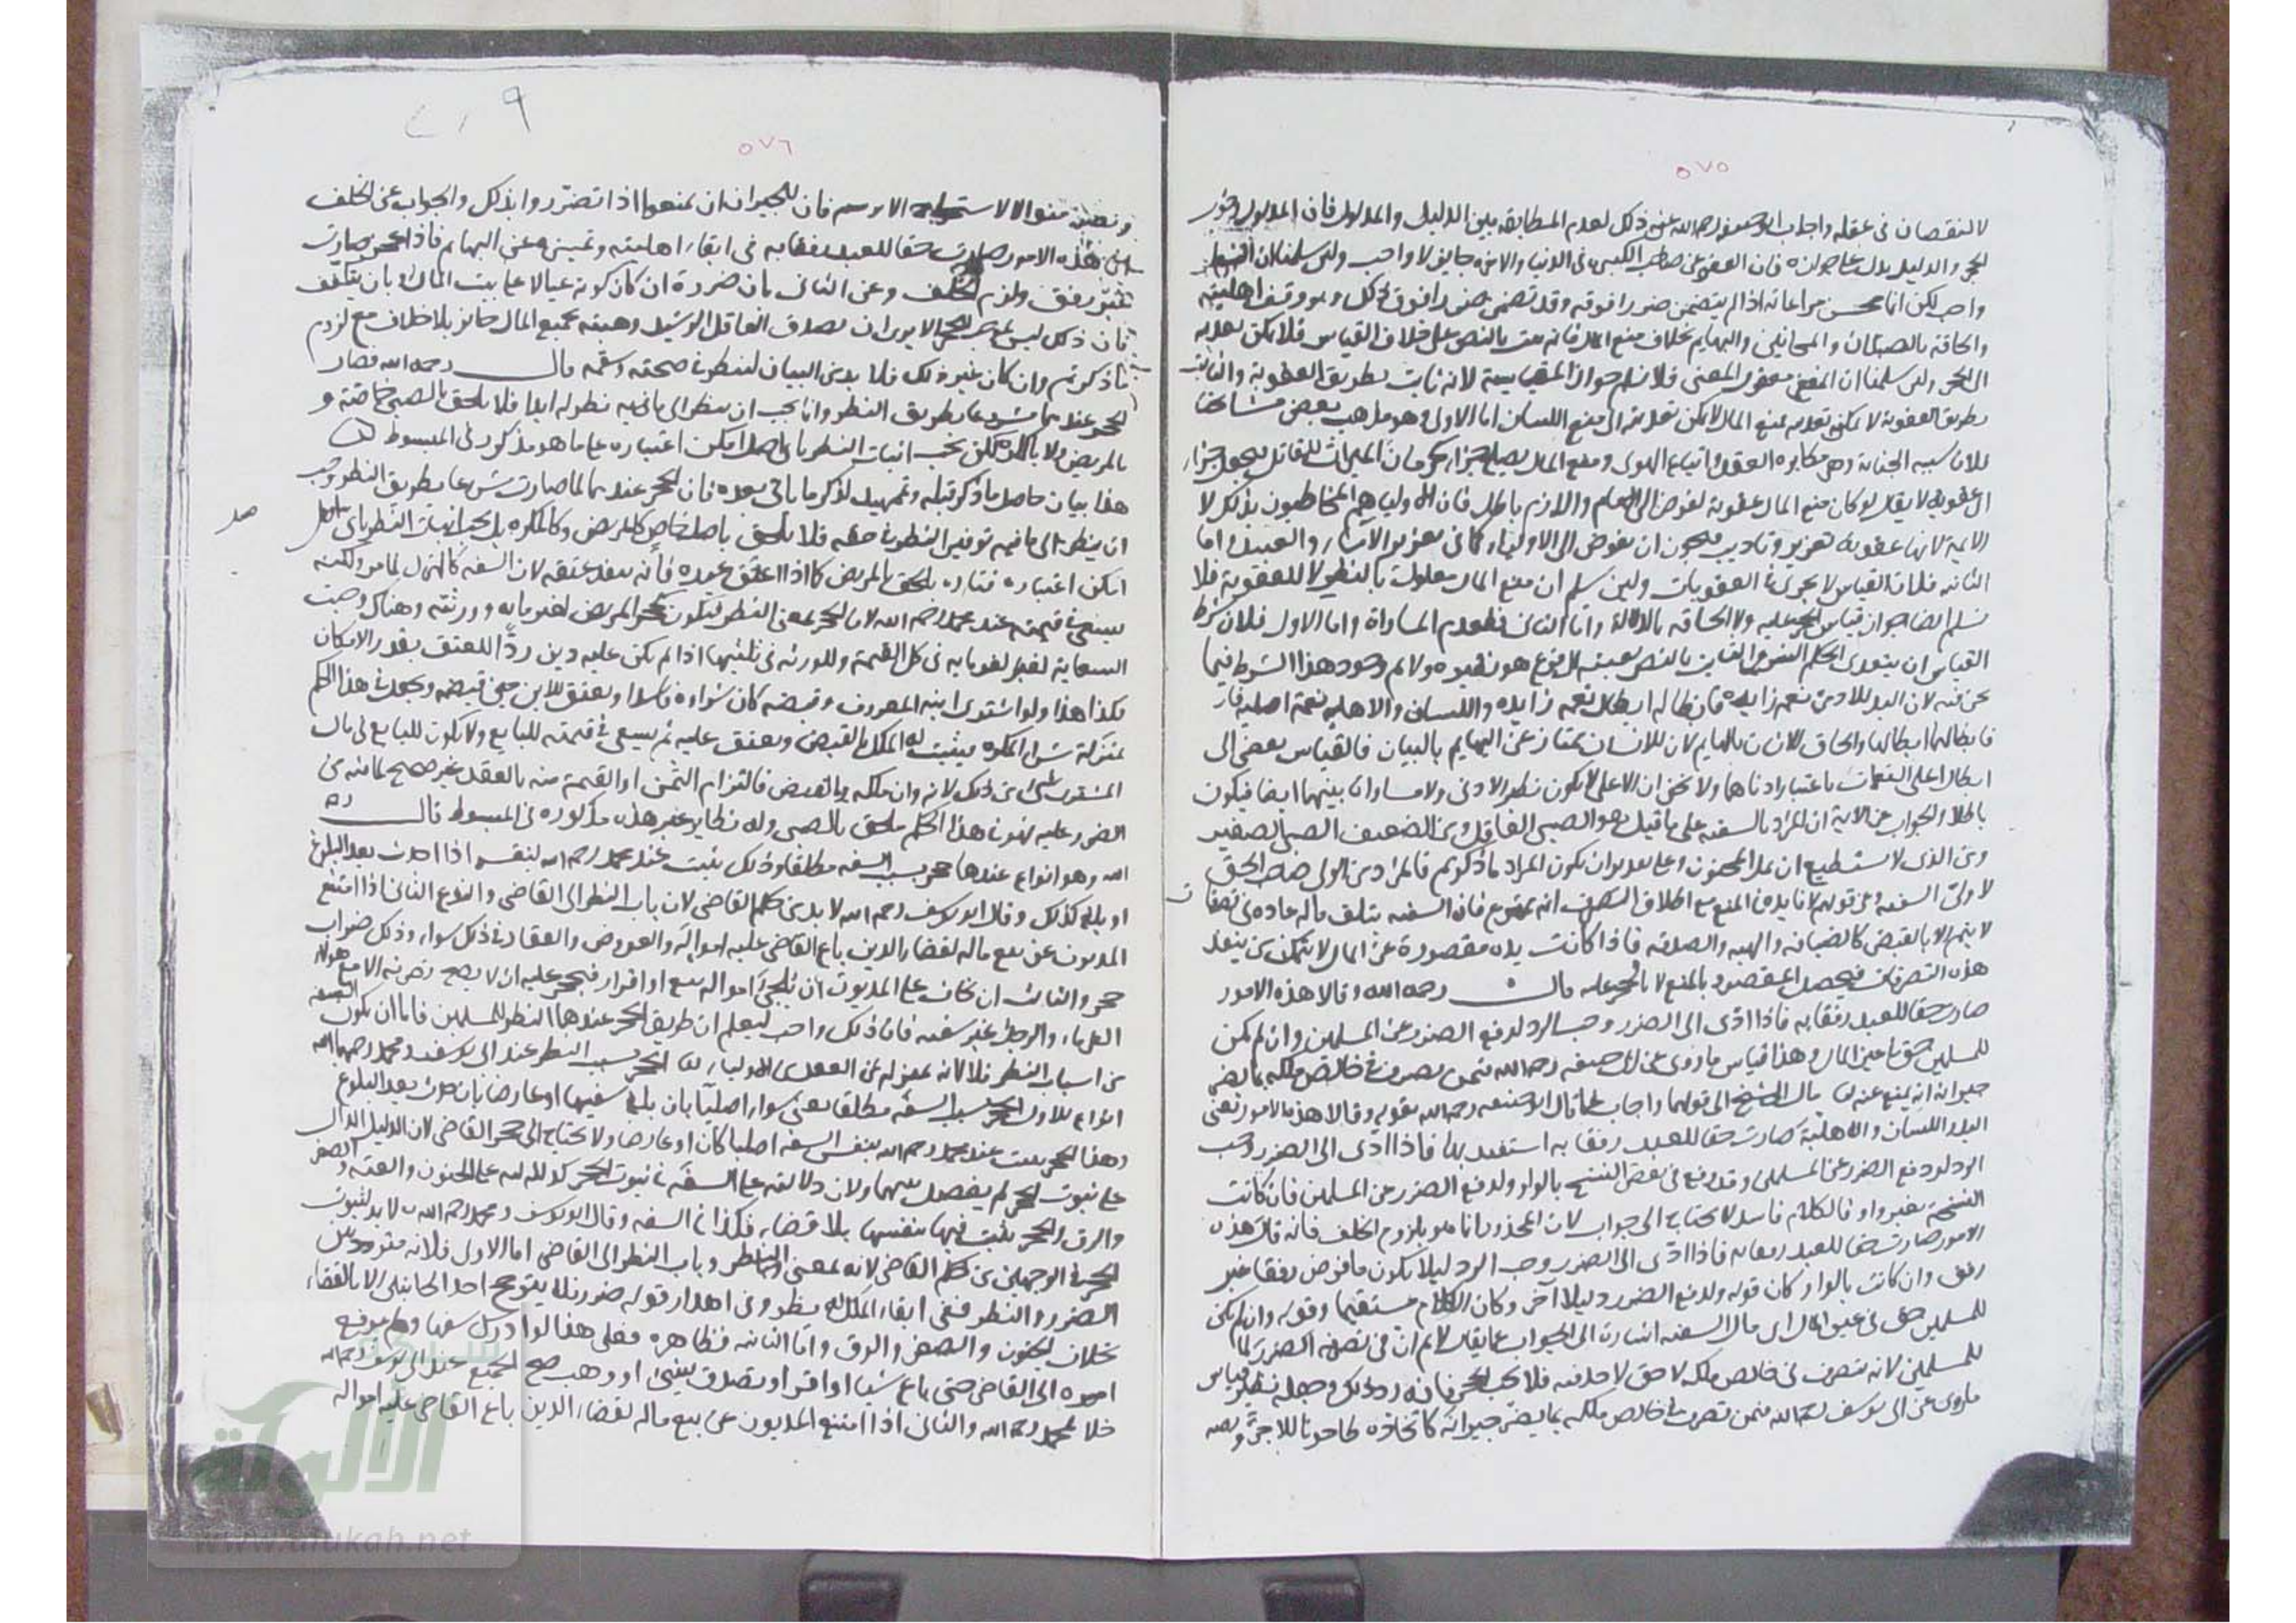 ٥٧٥
لا لنقصان فى عقله واجاب ابو حنيفه رحمه الله عن ذلك لعدم المطابقه بين الدليل والمدلول فان المدلول وجوب
الحجر والدليل يدل على جوازه فان العفو عن صاحب الكبيره فى الدنيا والاخره جايز لا واجب ولئن سلمنا ان النظر
واجب لكن انما يحسن مراعاته اذا لم يتضمن ضررا فوقه وقد تضمن ضررا فوق ذلك وهو وقف اهليته
والحاقه بالصبيان والمجانين والبهايم بخلاف منع المال فانه ثبت بالنص على خلاف القياس فلا يمكن تعديه
الى الحجر ولئن سلمنا ان المنع معقول المعنى فلا نسلم جواز المقايسة لانه ثابت بطريق العقوبة والثابت
بطريق العقوبة لا يمكن تعديه لمنع المال لا يمكن تعديته الى منع اللسان اما الاول وهو مذهب بعض مشايخنا
فلان سببه الجناية وهى مكابره العقل واتباع الهوى ومنع المال يصلح جزاء كحرمان الميراث للقاتل فيجعل جزاء
ال عقوبة لا يقال لو كان منع المال عقوبة لفوض الى الحكام واللازم باطل فان الاولياء هم المخاطبون بذلك لا
الايمة لانها عقوبة تعزير وتاديب فيجوز ان يفوض الى الاولياء كما فى تعزير الاماء والعبيد اما
الثانيه فلان القياس لا يجرى فى العقوبات ولئن سلم ان منع المال معلول بالنظر لا للعقوبة فلا
نسلم ايضا جواز قياس الحجر عليه ولا الحاقه بالدلالة واما الثانى فلعدم المساواة واما الاول فلان شرط
القياس ان يتعدى الحكم الشرعى الثابت بالنص بعينه الى فرع هو نظيره ولا نم وجود هذا الشرط فيما
نحن فيه لان اليد للادمى نعمه زايده فابطاله ابطال نعمه زايده واللسان والاهليه نعمة اصليه فان
فابطالها ابطالها والحاق الانسان بالبهايم لان الانسان يمتاز عن البهايم بالبيان فالقياس يفضى الى
ابطال اعلى النعمات باعتبار ادناهما ولا يخفى ان الاعلى لا يكون نظير الادنى ولا مساواة بينهما ايضا فيكون
باطلا والجواب عن الاية ان المراد بالسفيه على ما قيل هو الصبى العاقل ومن الضعيف الصبى الصغير
ومن الذى لا يستطيع ان يمل المجنون وعلى تقدير ان يكون المراد ما ذكرتم فالمراد من الولى صاحب الحق
لا ولى السفيه وعن قولهم لا فايده فى المنع مع اطلاق التصرف انه ممنوع فان السفيه يتلف ماله عاده فى تصرفات
لا يتم الا بالقبض كالضيافه والهبه والصدقه فاذا كانت يده مقصورة عن المال لا يتمكن من تنفيذ
هذه التصرفات فيحصل المقصود بالمنع لا بالحجر عليه قال رحمه الله وقالا هذه الامور
صارت حقا للعبد رفقا به فاذا ادى الى الضرر وجب الرد لدفع الضرر عن المسلمين وان لم يكن
للمسلمين حق فى عين المال وهذا قياس ما روى عن ابى حنيفه رحمه الله فيمن يتصرف فى خالص ملكه بما يضر
جيرانه انه يمنع عنه لما مال الشيخ الى قولهما واجاب عما قال ابو حنيفه رحمه الله بقوله وقالا هذه الامور يعنى
اليد واللسان والاهلية صارت حقا للعبد رفقا به استفيد بها فاذا ادى الى الضرر وجب
الرد لدفع الضرر عن المسلمين وقد وقع فى بعض النسخ بالواو ولدفع الضرر عن المسلمين فان كانت
النسخة بغير واو فالكلام فاسد لا يحتاج الى جواب لان المحذور انما هو بلزوم الخلف فانه قال هذه
الامور صارت حقا للعبد رفقا به فاذا ادى الى الضرر وجب الرد ليلا يكون ما فرض رفقا غير
رفق وان كانت بالواو كان قوله ولدفع الضرر دليلا آخر وكان الكلام مستقيما وقوله وان لم يكن
للمسلمين حق فى عين المال اى مال السفيه اشارة الى الجواب عما يقال لا نم ان فى تصرفه الضرر لما
للمسلمين لانه متصرف فى خالص ملكه لا حق لاحد فيه فلا يجب الحجر فانه رد ذلك وجعله نظير قياس
ما روى عن ابى يوسف رحمه الله فيمن تصرف فى خالص ملكه بما يضر جيرانه كاتخاذه طاحونا للاجرة ونصبه
٥٧٦
ونصب منوال لاستخراج الابريسم فان للجيران ان يمنعوا اذا تضرروا بذلك والجواب عن الخلف
ان هذه الامور صارت حقا للعبد رفقا به فى ابقاء اهليته وتميزه عن البهايم فاذا حجر صارت
غير رفق ولزم الخلف وعن الثانى بان ضررة ان كان كونه عيالا على بيت المال او بان يتكفف
فان ذلك ليس بموجب للحجر الا يرى ان تصدق العاقل الرشيد وهبته بجميع المال جايز بلا خلاف مع لزوم
ما ذكرتم وان كان غير ذلك فلا بد من البيان لننظر فى صحته وسقمه قال رحمه الله فصار
الحجر عندهما مشروعا بطريق النظر وانما يجب ان ينظر الى ما فيه نظر له ابدا فلا يلحق بالصبى خاصة و
بالمريض ولا بالمكره لكن يجب اثبات النظر باى اصل امكن اعتباره على ما هو مذكور فى المبسوط
هذا بيان حاصل ما ذكر قبله وتمهيد لذكر ما ياتى بعده فان الحجر عندهما لما صارت شرعا بطريق النظر وجب
ان ينظر الى ما فيه توفير النظر فى حقه فلا يلحق باصل خاص كالمريض وكالمكره بل يجب اثبات النظر باى اصل
امكن اعتباره فتاره يلحق بالمريض كما اذا اعتق عبده فانه ينفذ عتقه لان السفه كالهزل لما مر ولكنه
يسعى فى قيمته عند محمد رحمه الله لان الحجر لمعنى النظر فيكون كحجر المريض لغرمايه وورثته وهناك وجبت
السعاية لغير لغرمايه فى كل القيمة وللورثه فى ثلثيها اذا لم يكن عليه دين ردا للعتق بقدر الامكان
فكذا هذا ولو اشترى ابنه المعروف وقبضه كان شراوه فاسدا ويعتق الابن حين قبضه ويجعل فى هذا الحكم
بمنزلة شراء المكره فيثبت له الملك بالقبض ويعتق عليه ثم يسعى فى قيمته للبايع ولا يكون للبايع فى مال
المشترى شى من ذلك لانه وان ملكه بالقبض فالتزام الثمن او القيمة منه بالعقد غير صحيح لما فيه من
الضرر عليه فهو فى هذا الحكم ملحق بالصبى وله نظاير غير هذه مذكوره فى المبسوط قال رحمه
الله وهو انواع عندهما حجر بسبب السفه مطلقا وذلك يثبت عند محمد رحمه الله بنفسه اذا احدث بعد البلوغ
او بلغ كذلك وقال ابو يوسف رحمه الله لا بد من حكم القاضى لان باب النظر الى القاضى والنوع الثانى اذا امتنع
المديون عن بيع ماله لقضاء الدين باع القاضى عليه امواله والعروض والعقار فى ذلك سواء وذلك ضرب
حجر والثالث ان يخاف على المديون ان يلجئ امواله ببيع او اقرار فيحجر عليه ان لا يصح تصرفه الا مع هولاء
الغرماء والرجل غير سفيه فان ذلك واجب ليعلم ان طريق الحجر عندهما النظر للمسلمين فاما ان يكون السفه
من اسباب النظر فلا لانه بمنزله من العضل من الاولياء الحجر بسبب النظر عند ابى يوسف ومحمد رحمهما الله
انواع الاول الحجر بسبب السفه مطلقا يعنى سواء اصليا بان بلغ سفيها او عارضا بان حدث بعد البلوغ
وهذا الحجر يثبت عند محمد رحمه الله بنفس السفه اصليا كان او عارضا ولا يحتاج الى حجر القاضى لان الدليل الدال
على ثبوت الحجر لم يفصل بينهما ولان دلالته على السفه فى ثبوت الحجر كدلالته على الجنون والعته والصغر
والرق والحجر يثبت فيها بنفسها بلا قضاء فكذا فى السفه وقال ابو يوسف ومحمد رحمه الله لا بد لثبوت
الحجر فى الوجهين من حكم القاضى لانه لمعنى النظر وباب النظر الى القاضى اما الاول فلانه متردد بين
الضرر والنظر ففى ابقاء الملك له نظر وفى اهدار قوله ضرر فلا يترجح احد الجانبين الا بالقضاء
بخلاف الجنون والصغر والرق واما الثانيه فظاهره فعلى هذا لو ادرك سفيها ولم يرفع
امره الى القاضى حتى باع شيا او اقر او تصدق بشى او وهب صح الجميع عند ابى يوسف رحمه الله
خلافا لمحمد رحمه الله والثانى اذا امتنع المديون عن بيع ماله لقضاء الدين باع القاضى عليه امواله
الألوكة
www.alukah.net